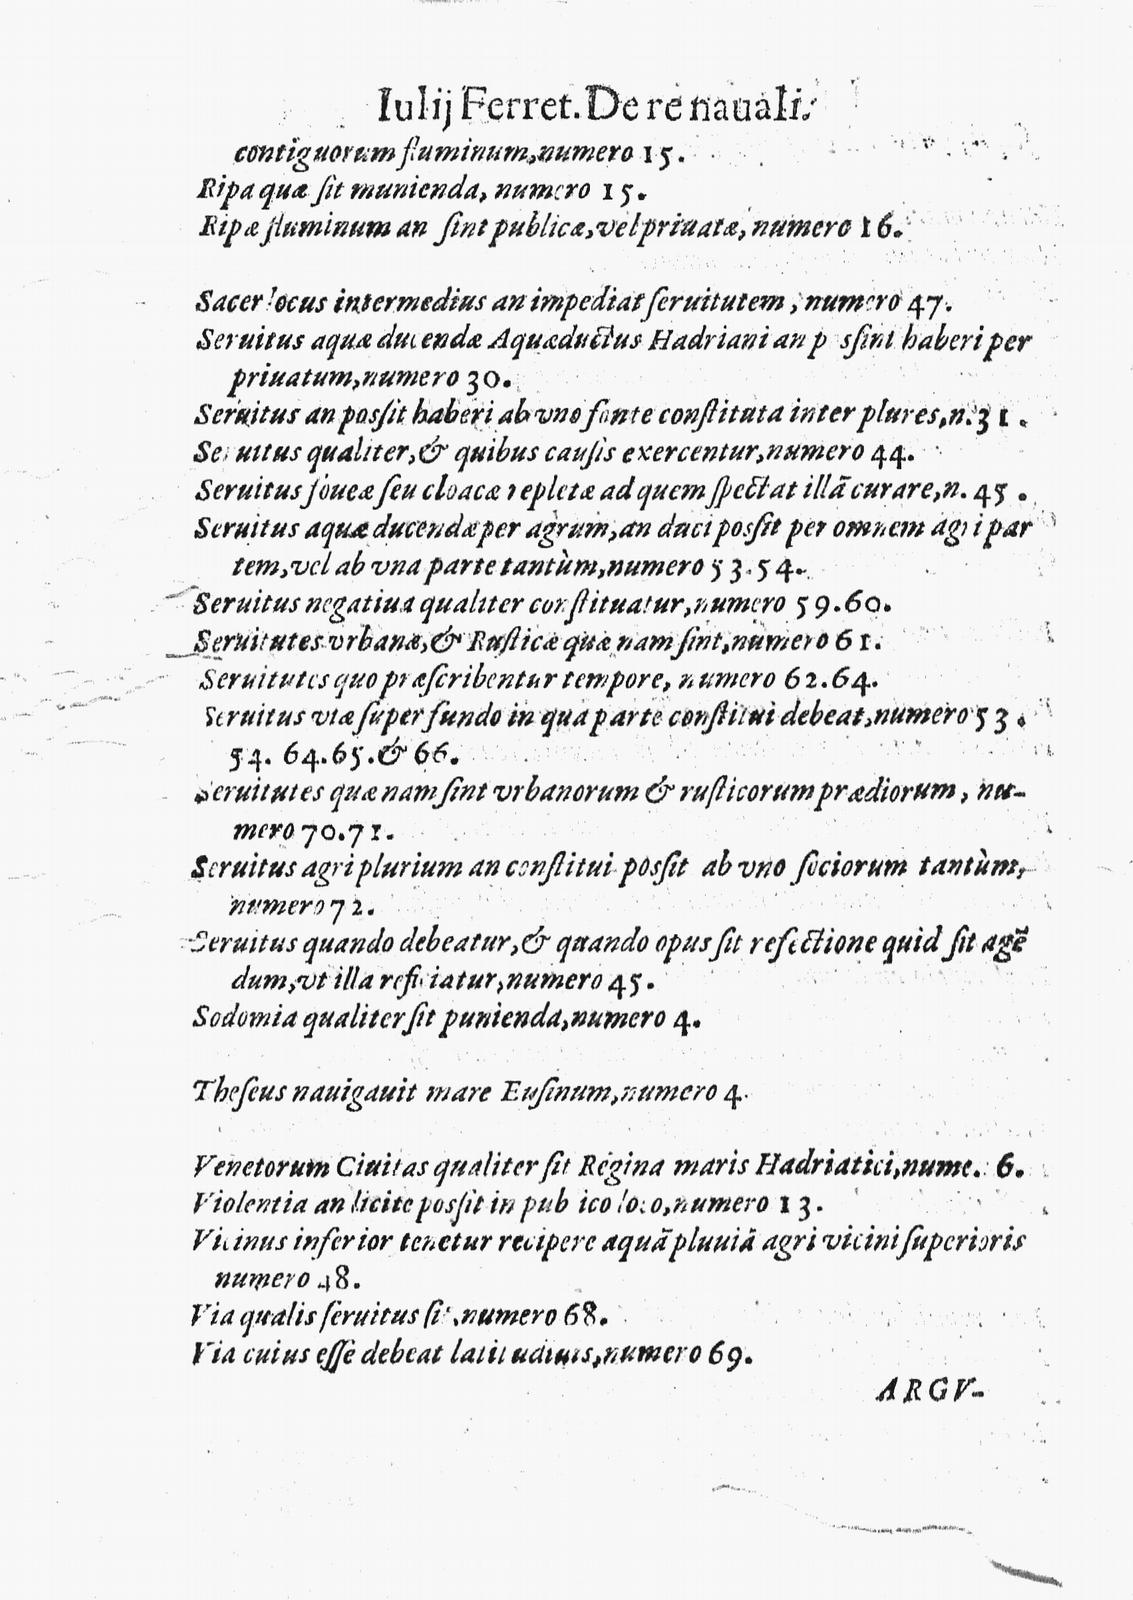 Iulij Ferret. De re nauali.
contiguorum fluminum, numero 15.
Ripa quæ ſit munienda, numero 15.
Ripæ fluminum an ſint publicæ, vel priuatæ, numero 16.
Sacer locus intermedius an impediat ſeruitutem, numero 47.
Seruitus aquæ ducendæ Aquæductus Hadriani an poſſint haberi per
priuatum, numero 30.
Seruitus an poſſit haberi ab vno fonte conſtituta inter plures, n. 31.
Seruitus qualiter, & quibus cauſis exercentur, numero 44.
Seruitus foueæ ſeu cloacæ repletæ ad quem ſpectat illã curare, n. 45.
Seruitus aquæ ducendæ per agrum, an duci poſſit per omnem agri par
tem, vel ab vna parte tantùm, numero 53.54.
Seruitus negatiua qualiter conſtituatur, numero 59.60.
Seruitutes vrbanæ, & Ruſticæ quæ nam ſint, numero 61.
Seruitutes quo præſcribentur tempore, numero 62.64.
Seruitus viæ ſuper fundo in qua parte conſtitui debeat, numero 53.
54. 64.65. & 66.
Seruitutes quæ nam ſint vrbanorum & ruſticorum prædiorum, nu-
mero 70.71.
Seruitus agri plurium an conſtitui poſſit ab vno ſociorum tantùm,
numero 72.
Seruitus quando debeatur, & quando opus ſit refectione quid ſit agẽ
dum, vt illa reficiatur, numero 45.
Sodomia qualiter ſit punienda, numero 4.
Theſeus nauigauit mare Euſinum, numero 4.
Venetorum Ciuitas qualiter ſit Regina maris Hadriatici, nume. 6.
Violentia an licite poſſit in publico loco, numero 13.
Vicinus inferior tenetur recipere aquã pluuiã agri vicini ſuperioris
numero 48.
Via qualis ſeruitus ſit, numero 68.
Via cuius eſſe debeat latitudinis, numero 69.
ARGV-